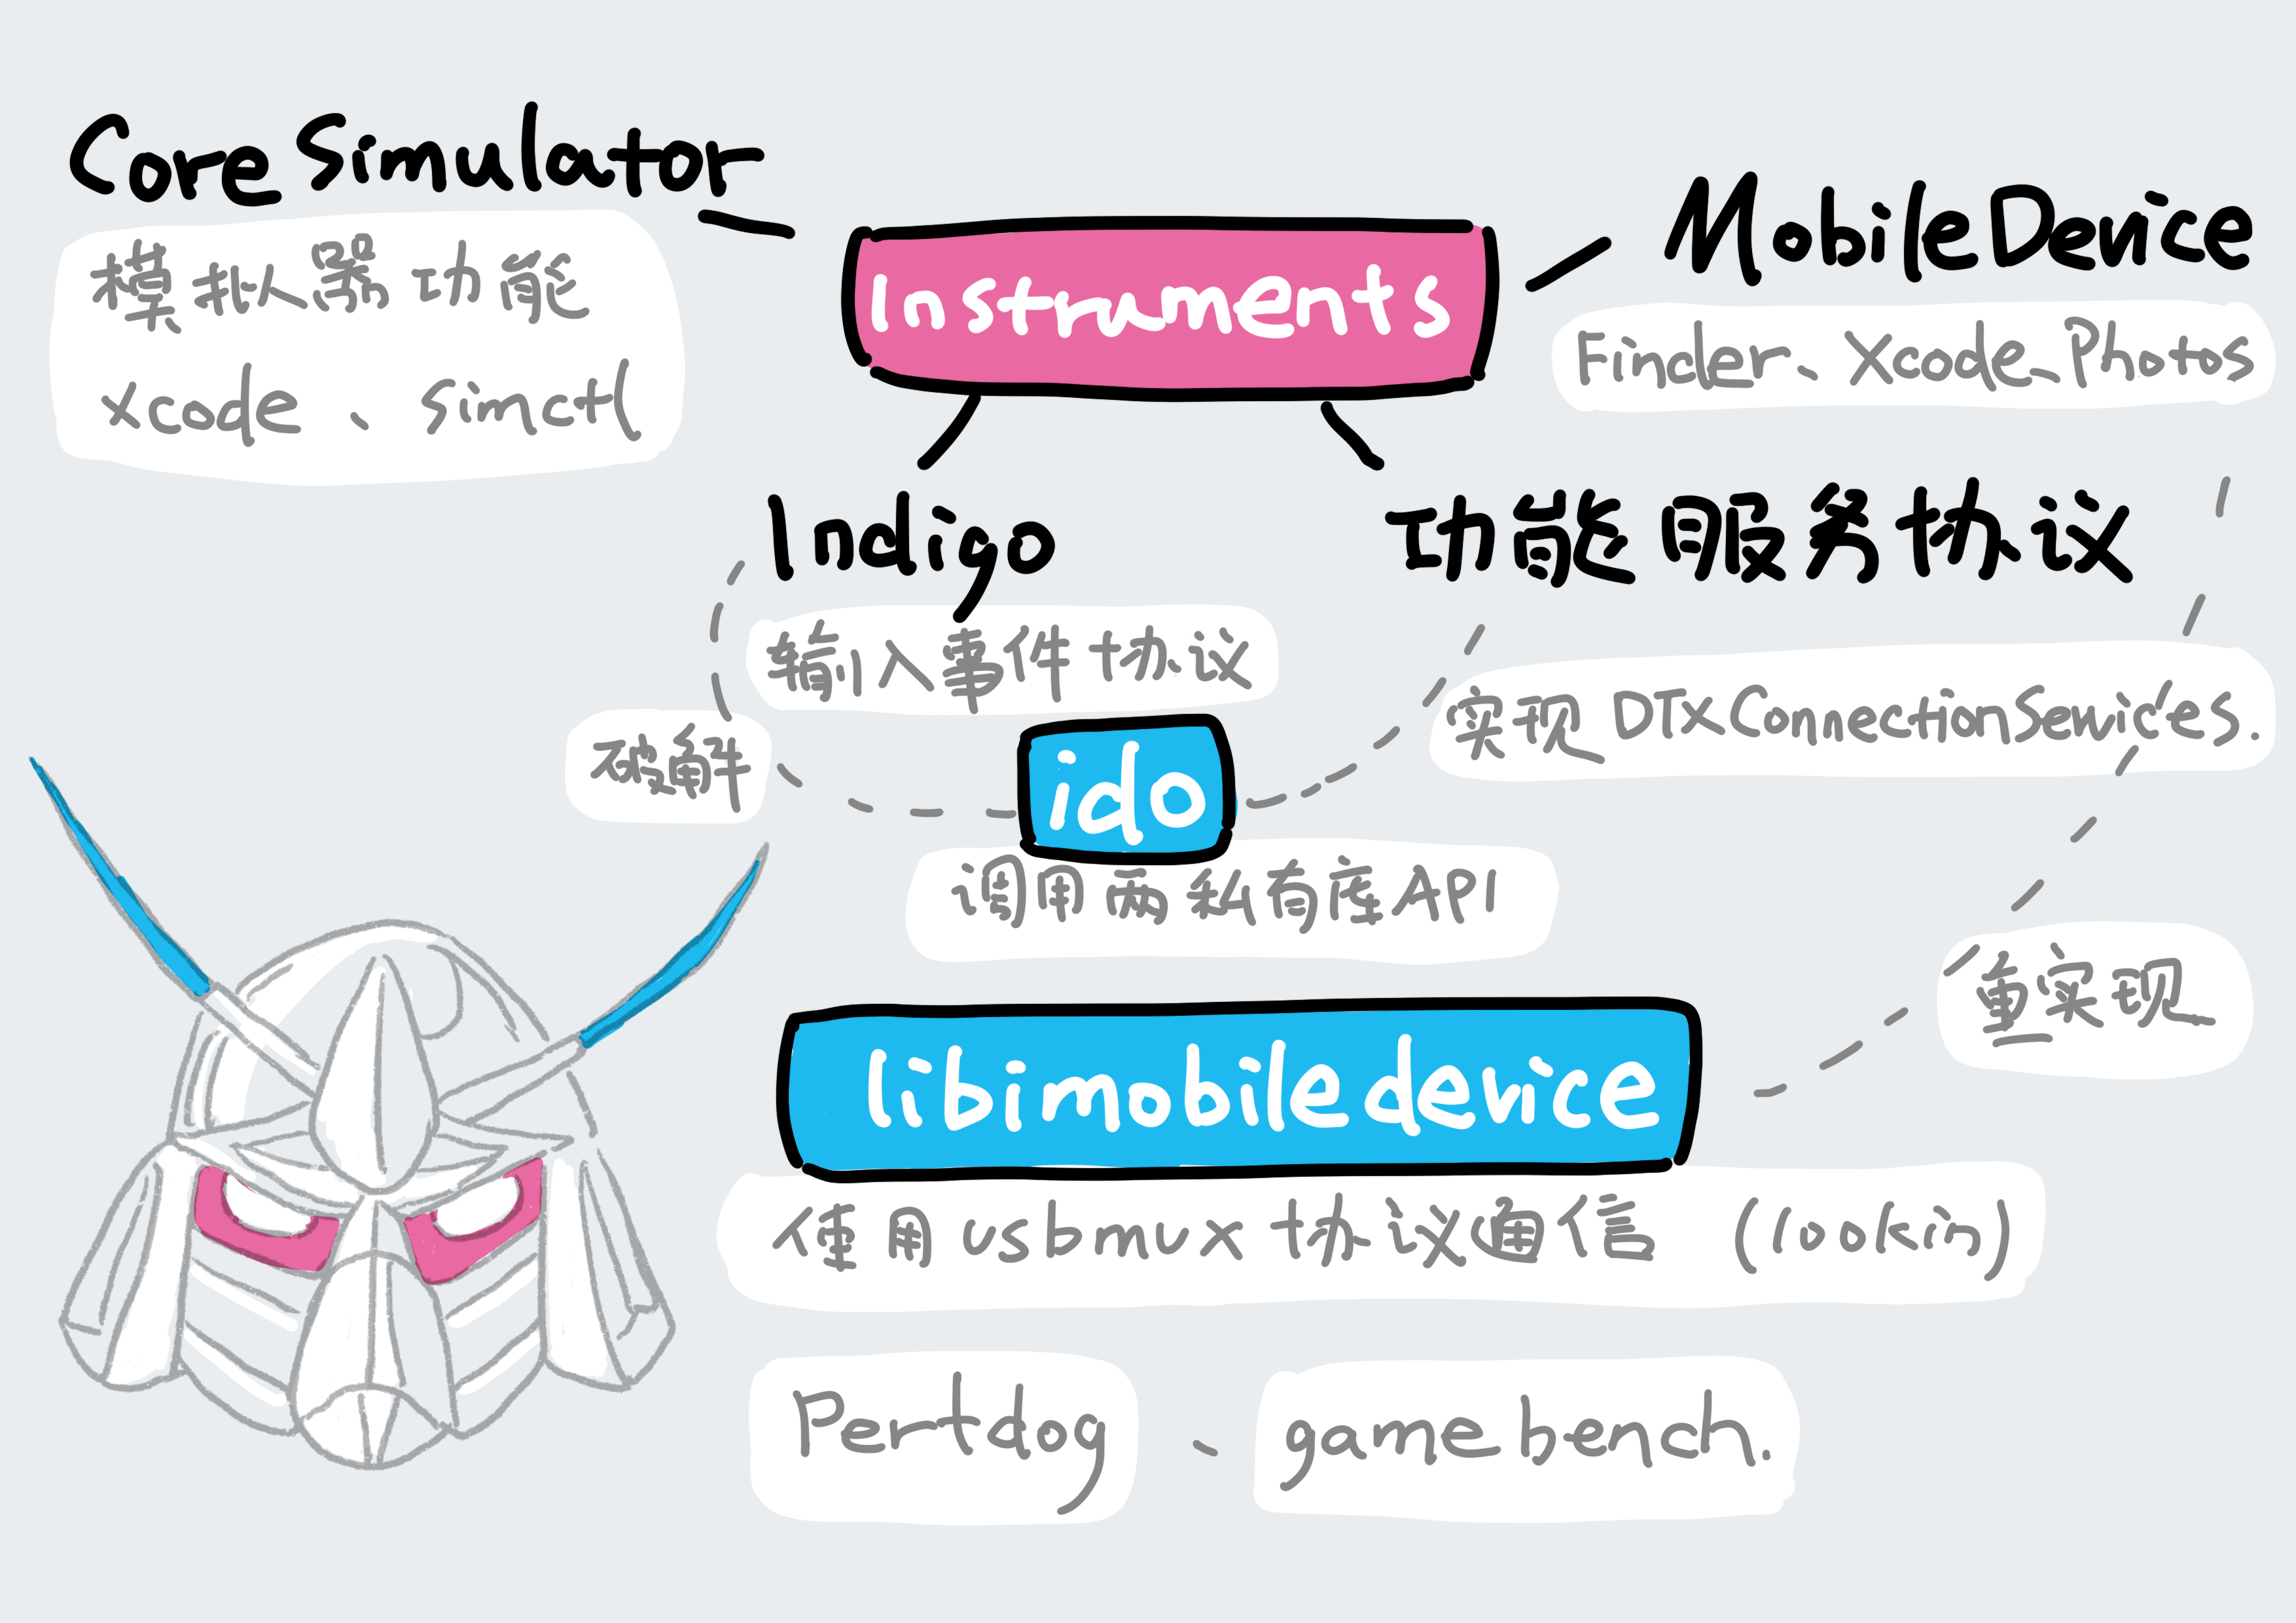 CoreSimulator
模拟器功能
xcode、simctl
Instruments
MobileDevice
Finder、Xcode、Photos
Indigo
输入事件协议
破解
功能服务协议
实现 DTXConnectionServices.
ido
调用两私有库API
重实现
libimobiledevice
使用usbmux协议通信 (lookin)
Perfdog、gamebench.